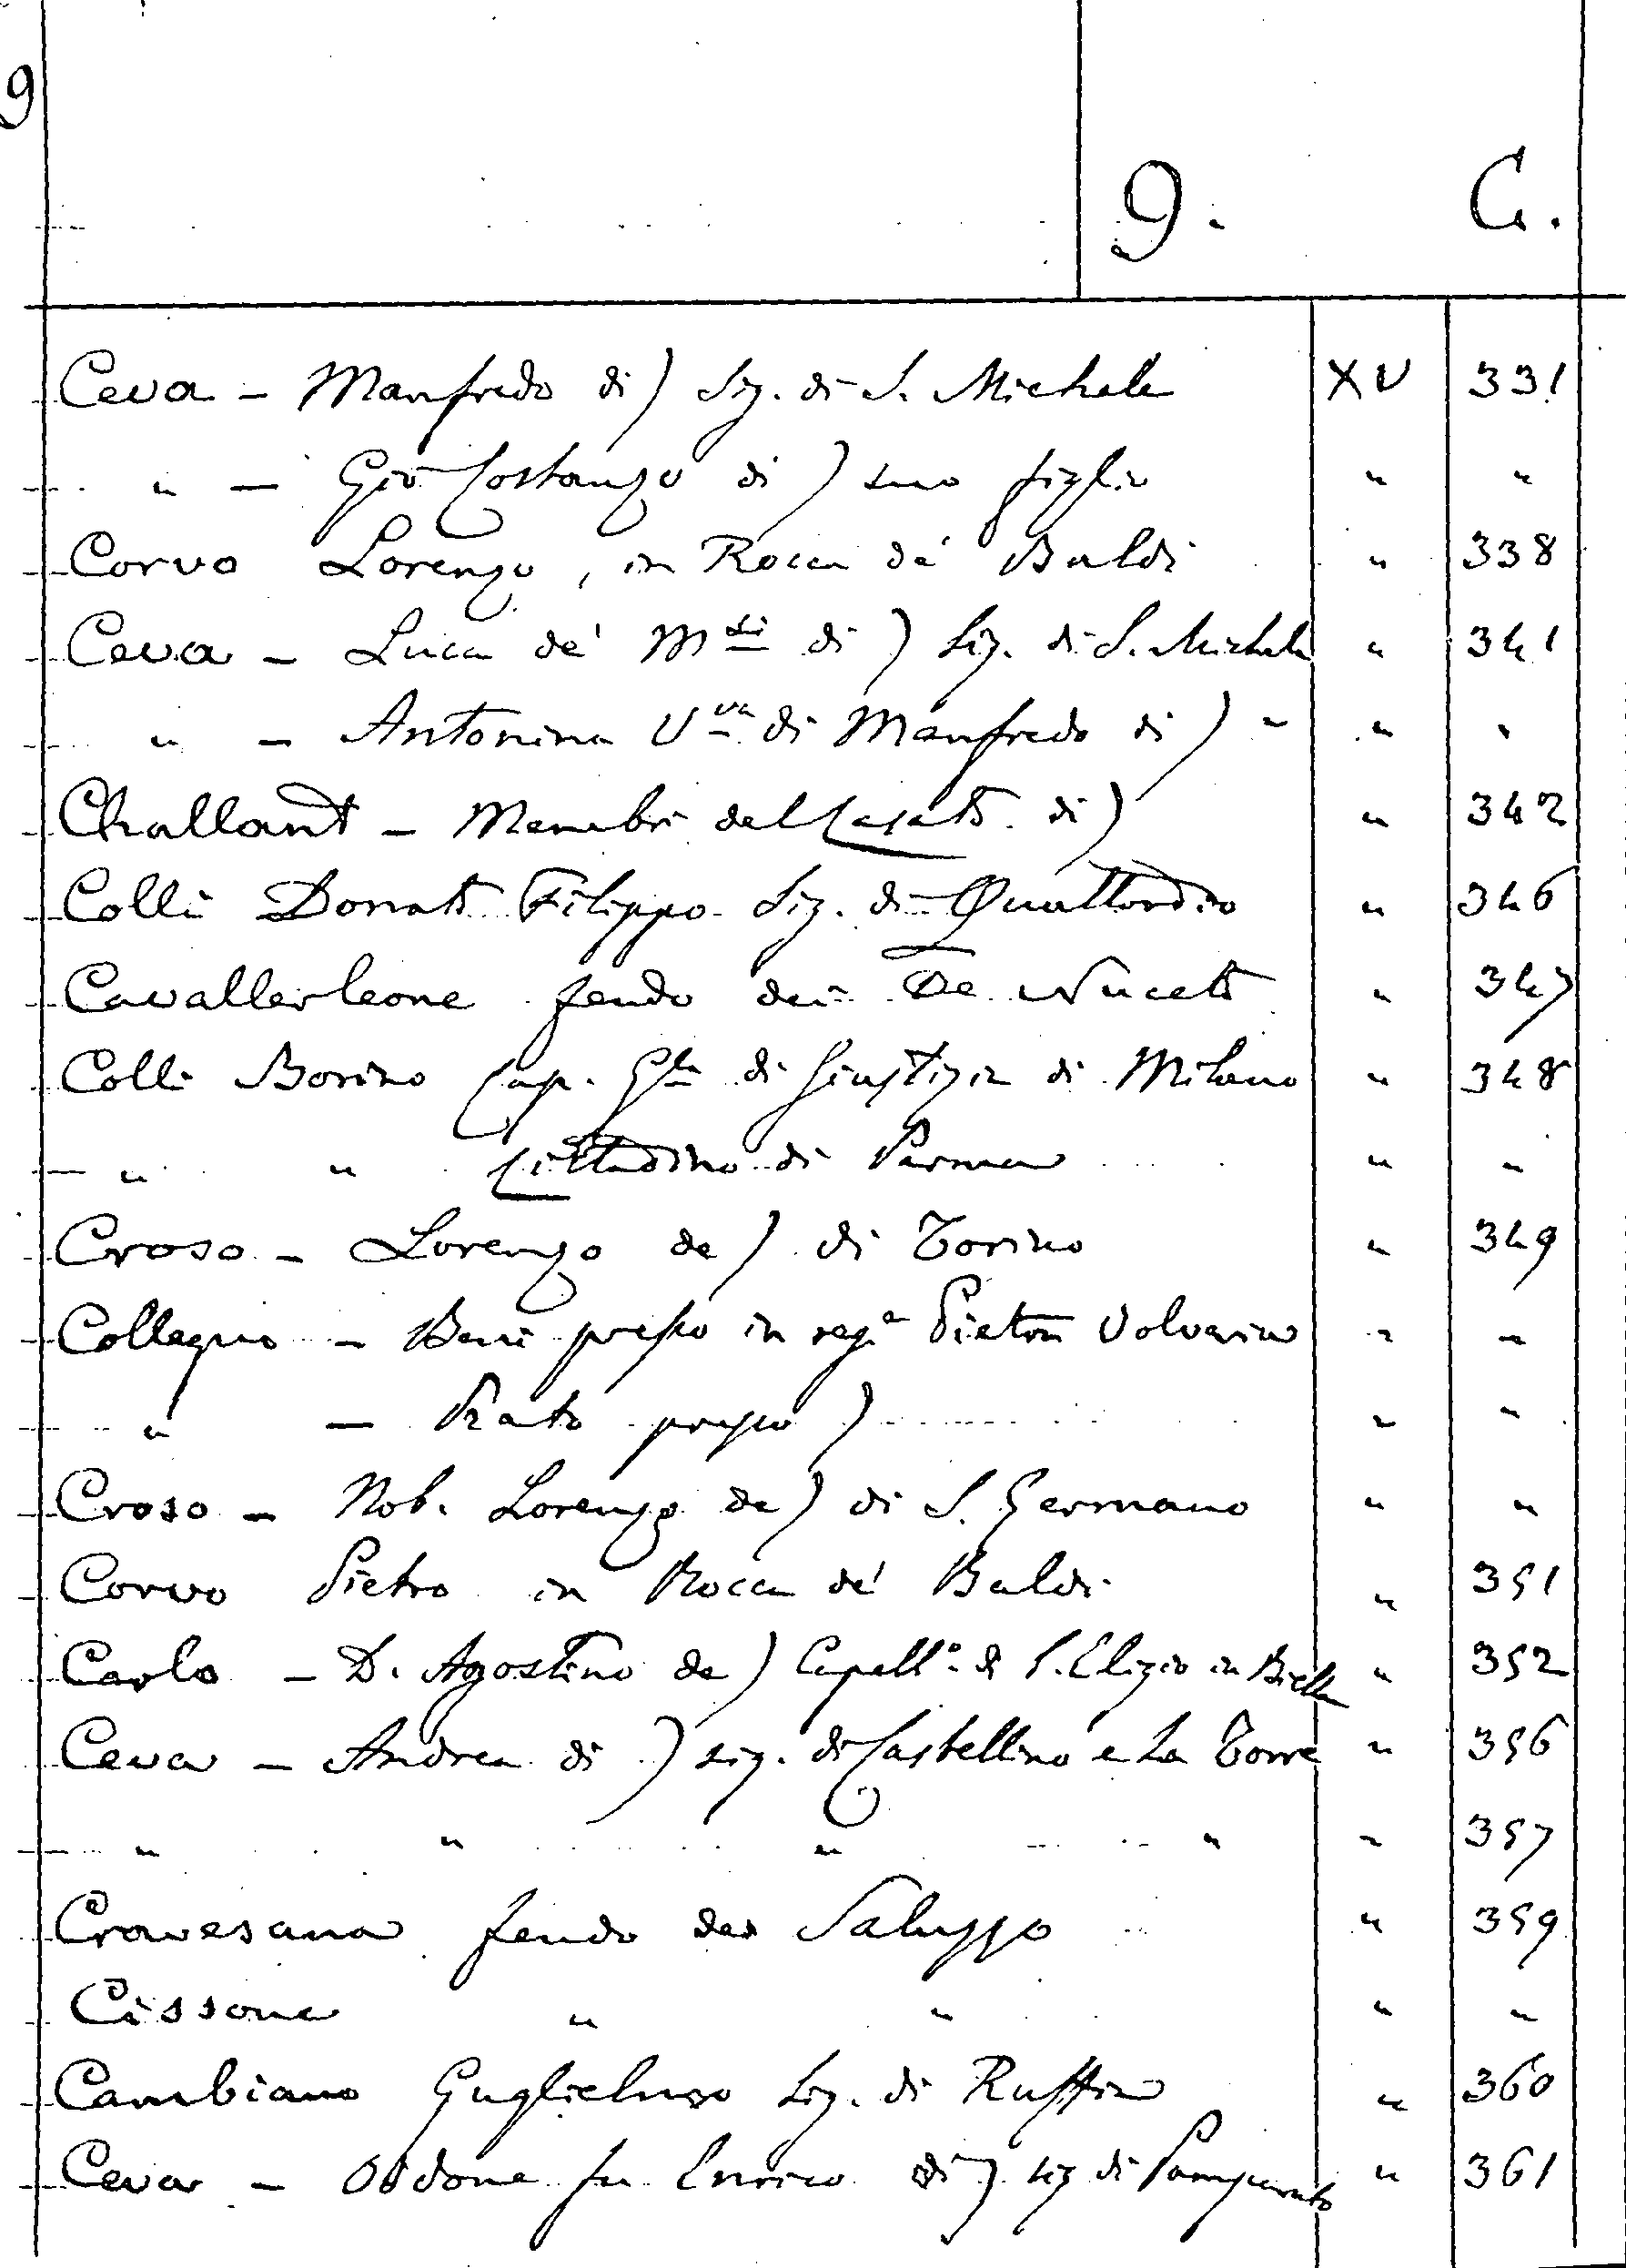 9
9. C.
Ceva – Manfredo di) Sig. di S. Michele XV 331
" – Gio Costanzo di) suo figlio " "
Corvo Lorenzo, in Rocca de' Baldi " 338
Ceva – Luca de' M.si di) Sig. di S. Michele " 341
" – Antonina V.va di Manfredo di) " " "
Challant – Membri del Casato di) " 342
Colli Donato Filippo Sig. di Quattordio " 346
Cavallerleone feudo dei De Nuceto " 347
Colli Borino Cap. Gle di Giustizia di Milano " 348
" " Cittadino di Parma " "
Croso – Lorenzo de) di Torino " 349
Collegno – Beni presso in rega Pietra Volvera " "
" – Prato presso) " "
Croso – Nob. Lorenzo de) di S. Germano " "
Corvo Pietro in Rocca de' Baldi " 351
Carlo – D. Agostino de) Capell.o di S. Eligio in Biella " 352
Ceva – Andrea di) sig. di Castellino e La Torre " 356
" " " " " 357
Cravesana feudo dei Saluzzo " 359
Cissone " " " "
Cambiano Guglielmo Sig. di Ruffia " 360
Ceva – Oddone fu Enrico di) sig di Pamparato " 361